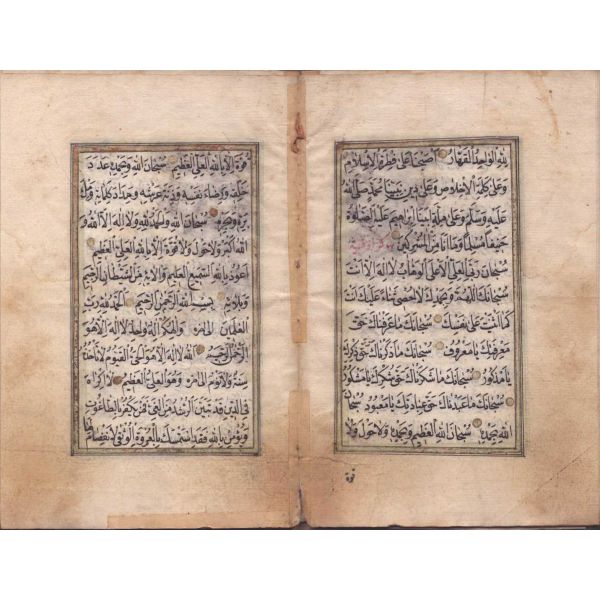 لله الواحد القهار اصبحنا على فطرة الاسلام
وعلى كلمة الاخلاص وعلى دين نبينا محمد صلى الله
عليه وسلم وعلى ملة ابينا ابراهيم عليه الصلوة
حنيفا مسلما وما انا من المشركين
سبحان ربى العلى الاعلى الوهاب لا اله الا انت
سبحانك اللهم وبحمدك لا احصى ثناء عليك انت
كما اثنيت على نفسك سبحانك ما عرفناك حق
معرفتك يا معروف سبحانك ما ذكرناك حق ذكرك
يا مذكور سبحانك ما شكرناك حق شكرك يا مشكور
سبحانك ما عبدناك حق عبادتك يا معبود سبحان
الله وبحمده سبحان الله العظيم وبحمده ولا حول ولا
قوة
قوة الا بالله العلى العظيم سبحان الله وبحمده عدد
خلقه ورضاء نفسه وزنة عرشه ومداد كلماته
سبحان الله والحمد لله ولا اله الا الله و
الله اكبر ولا حول ولا قوة الا بالله العلى العظيم
اعوذ بالله السميع العليم من الشيطان الرجيم
بسم الله الرحمن الرحيم الحمد لله رب
العالمين الى اخره والهكم اله واحد لا اله الا هو
الرحمن الرحيم الله لا اله الا هو الحى القيوم لا تاخذه
سنة ولا نوم الى اخره وهو العلى العظيم لا اكراه
فى الدين قد تبين الرشد من الغى فمن يكفر بالطاغوت
ويؤمن بالله فقد استمسك بالعروة الوثقى لا انفصام لها